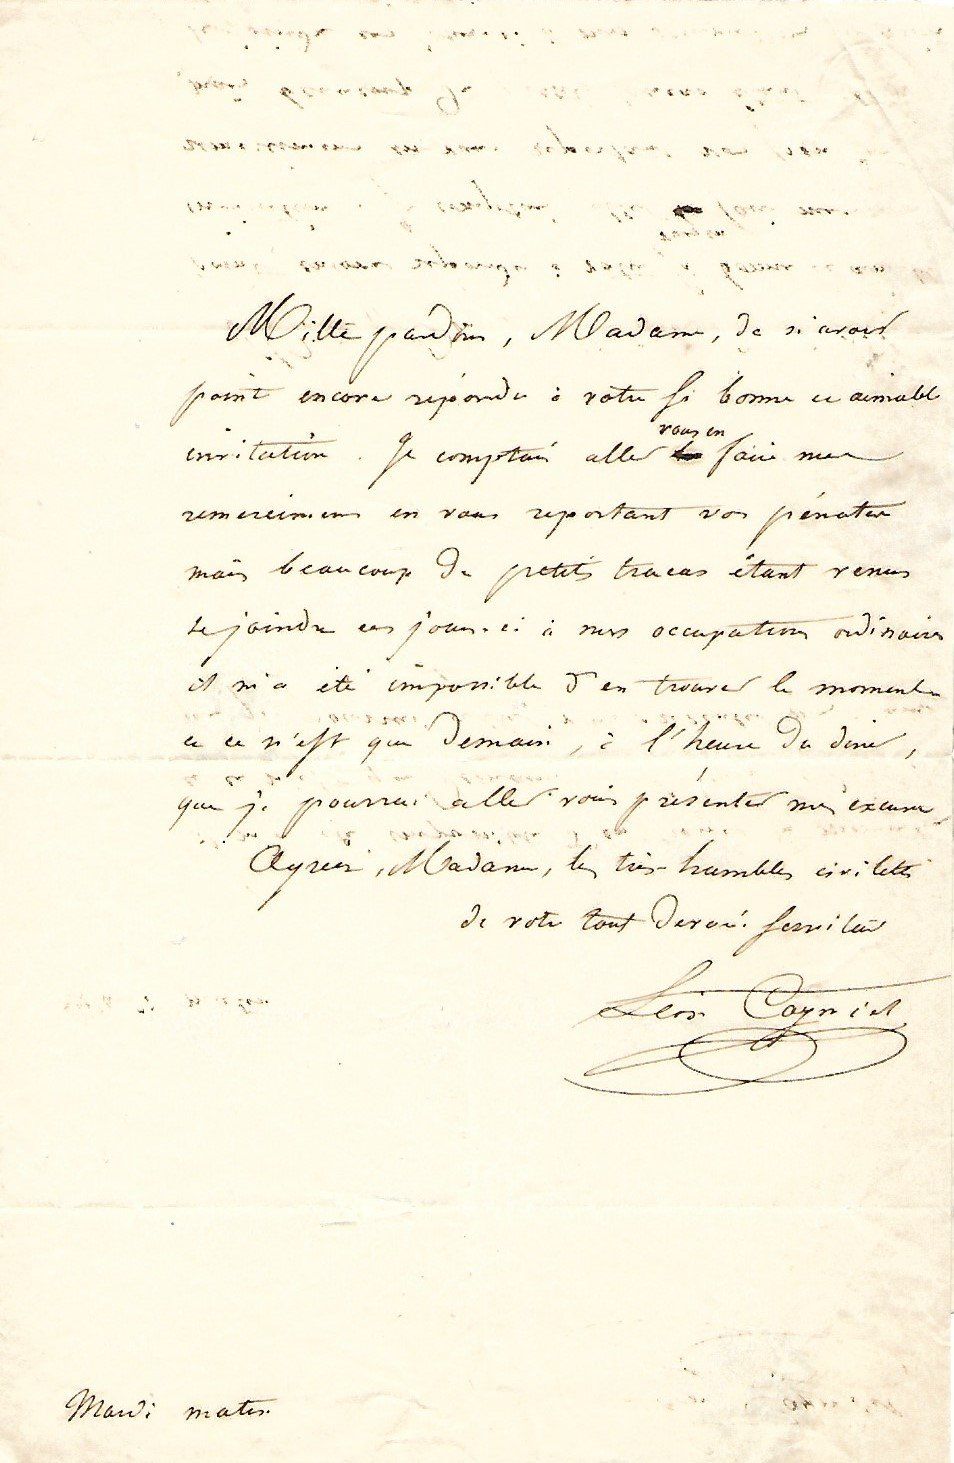 Mille pardons, Madame, de n'avoir
point encore répondu à votre si bonne et aimable
invitation. Je comptais aller vous en faire mes
remerciemens en vous reportant vos pénates
mais beaucoup de petits tracas étant venus
se joindre ces jours-ci à mes occupations ordinaires
il m'a été impossible d'en trouver le moment
et ce n'est que demain, à l'heure du diner,
que je pourrai aller vous présenter mes excuses.
Agréez, Madame, les très-humbles civilités
de votre tout dévoué serviteur
Léon Cogniet
Mardi matin